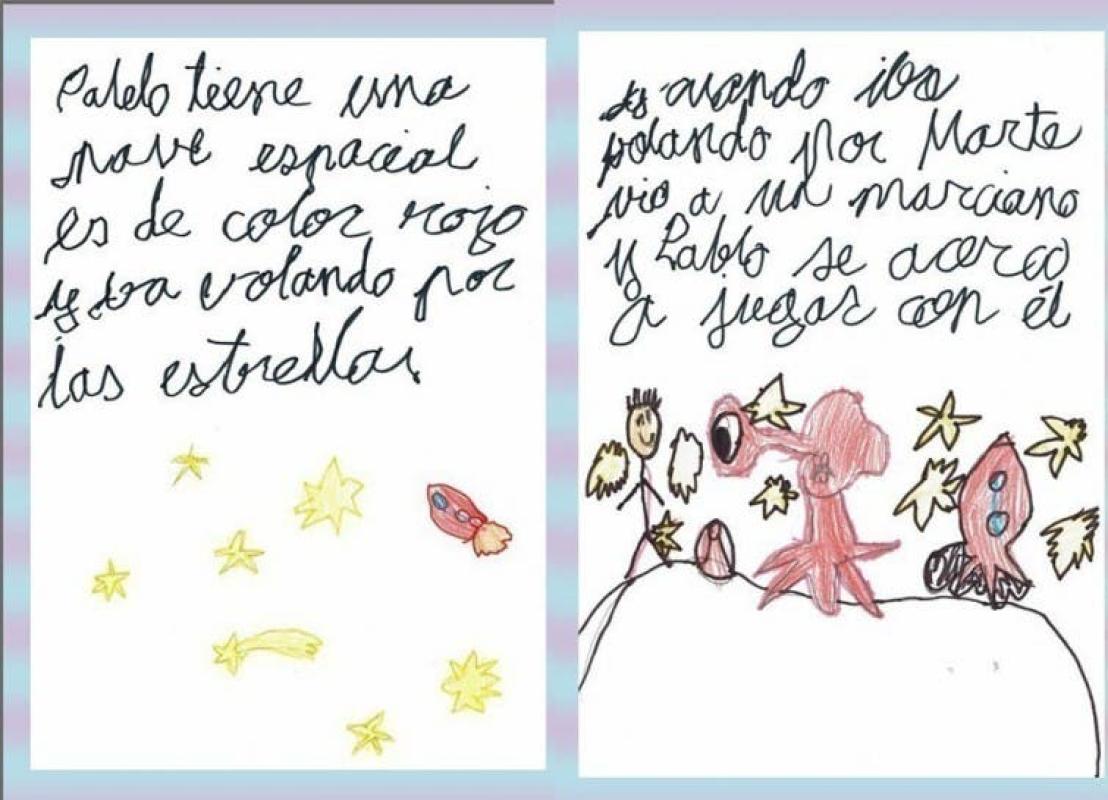 Pablo tiene una
nave espacial
es de color rojo
y iva volando por
las estrellas.
cuando iva
volando por Marte
vio a un marciano
y Pablo se acerco
a jugar con él